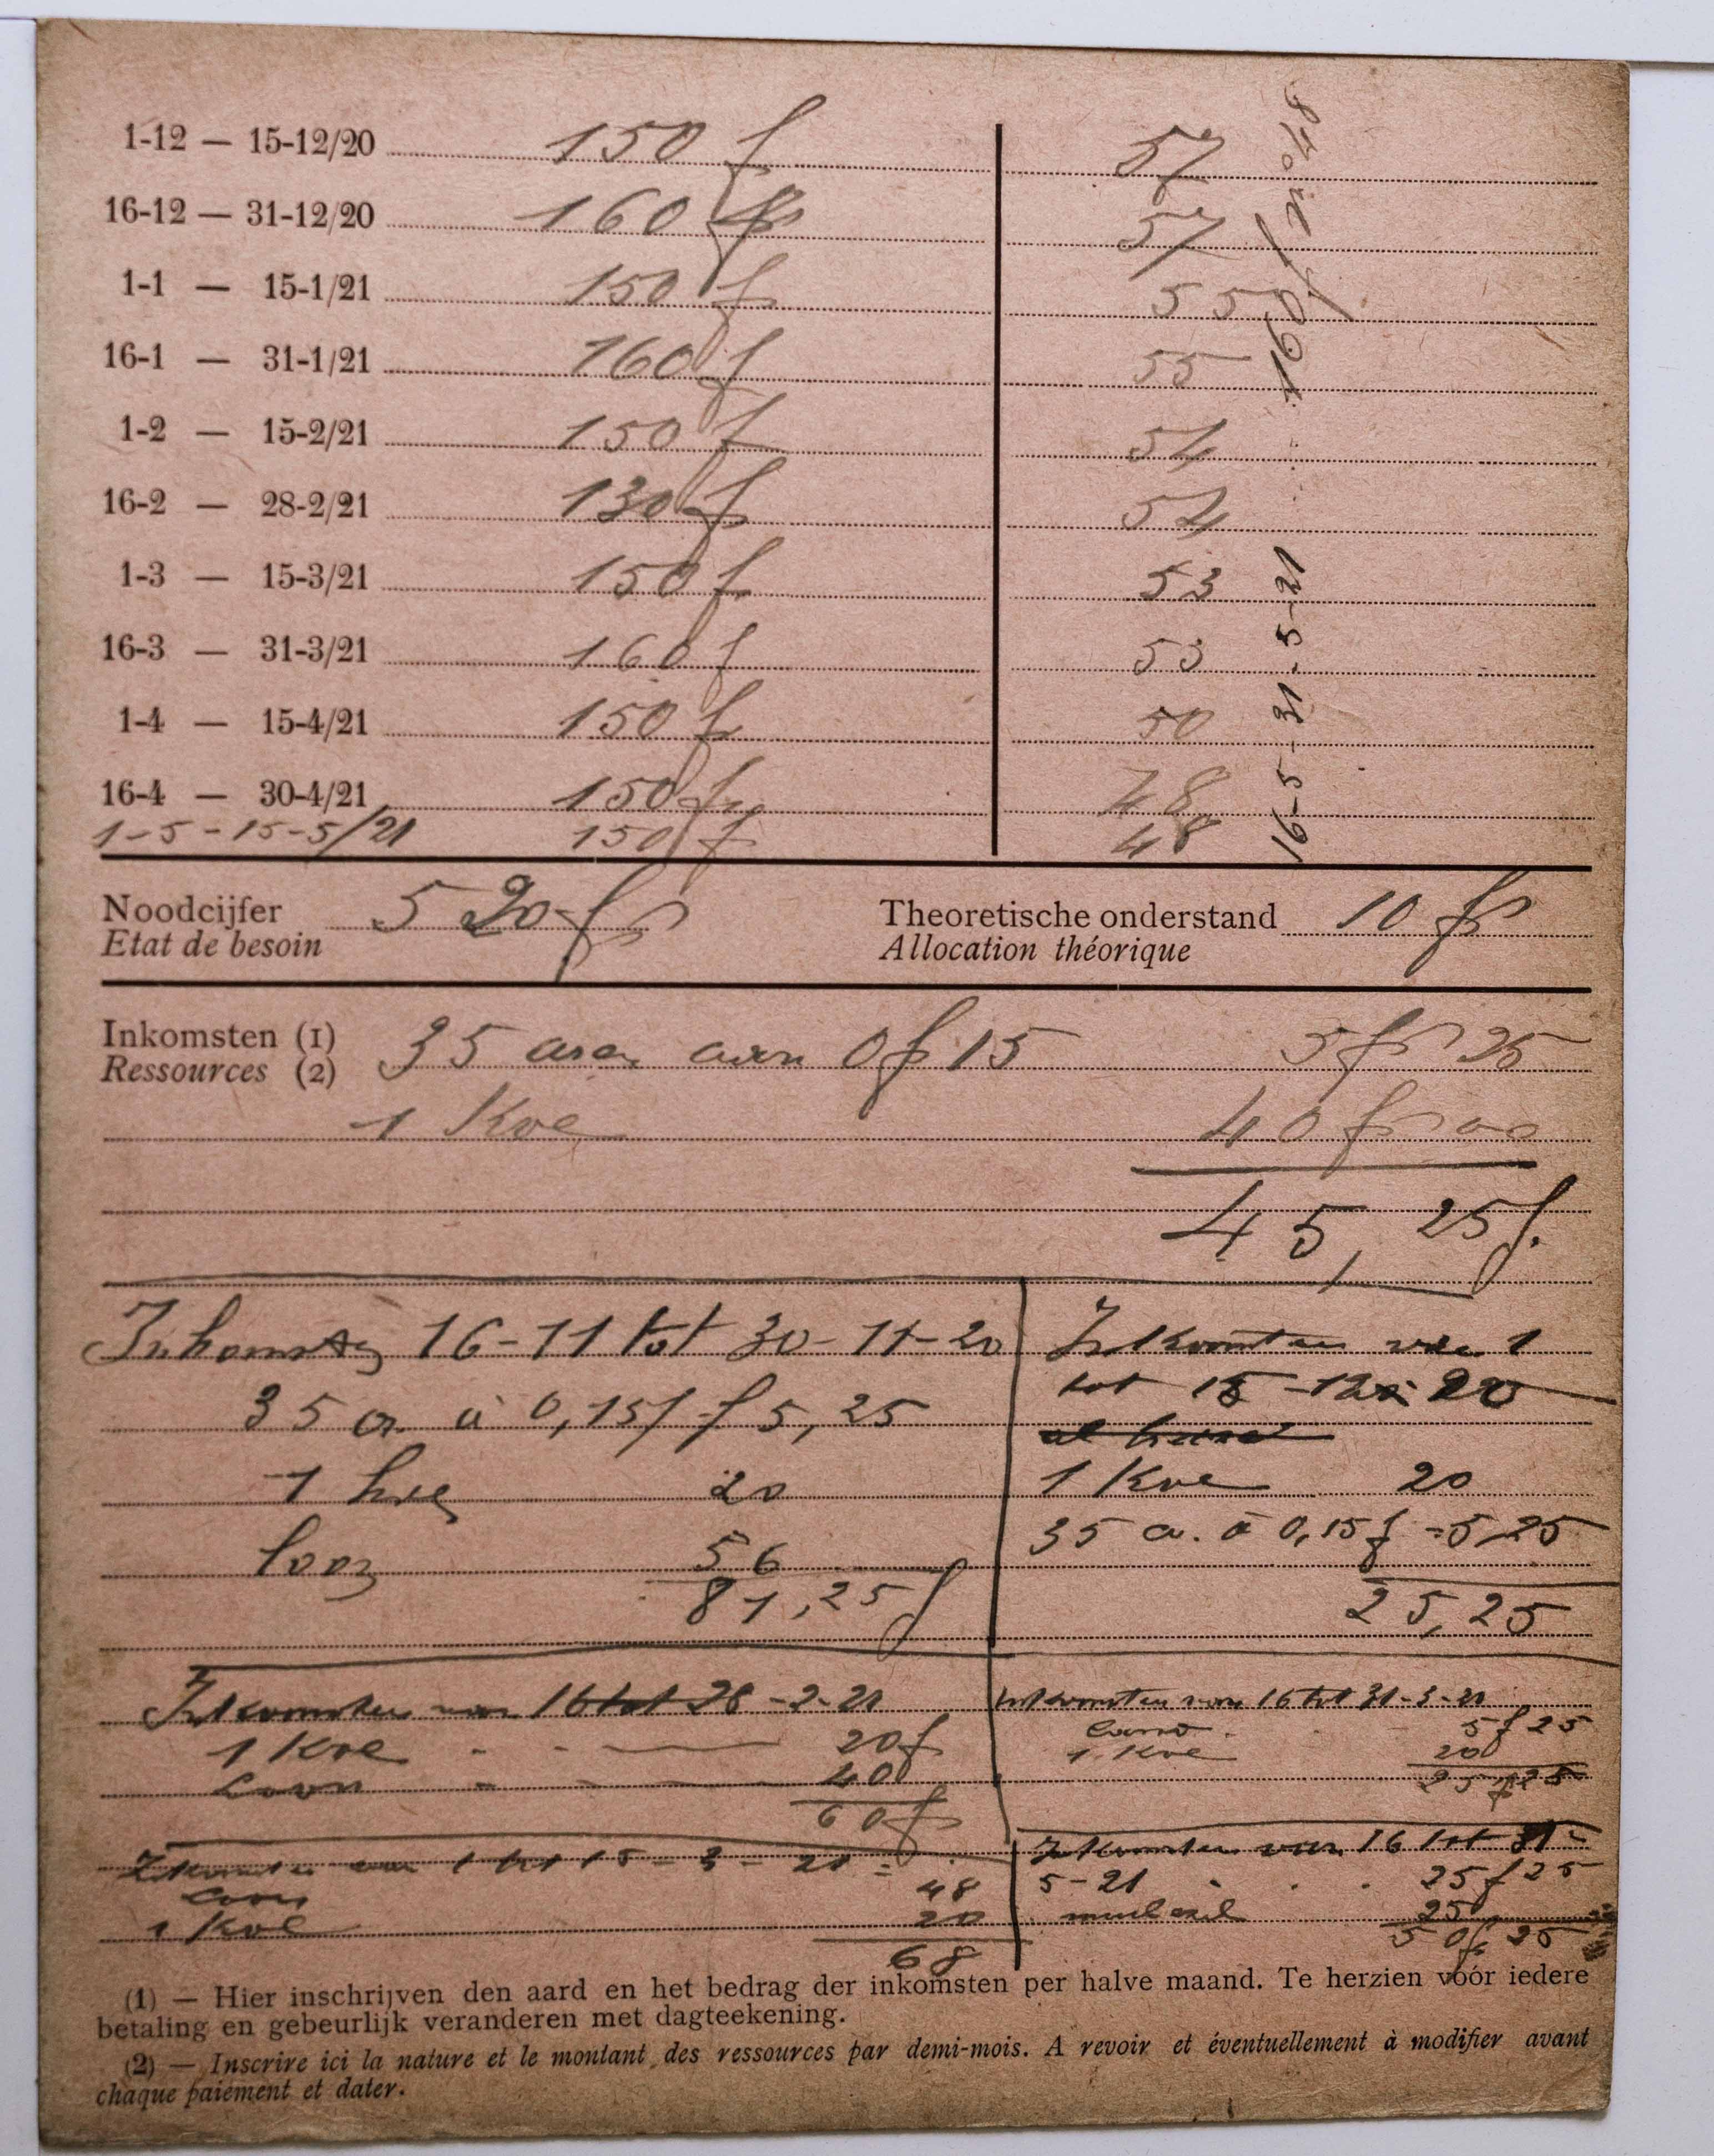 1-12 — 15-12/20 150 f 57
16-12 — 31-12/20 160 fr 57
1-1 — 15-1/21 150 f 55
16-1 — 31-1/21 160 f 55
1-2 — 15-2/21 150 f 54
16-2 — 28-2/21 130 f 54
1-3 — 15-3/21 150 f 53
16-3 — 31-3/21 160 f 53
1-4 — 15-4/21 150 f 50
16-4 — 30-4/21 150 fr 48
1-5-15-5/21 150 f 48
16-5-31-5-21 160 f n° 48
Noodcijfer 520 fr Theoretische onderstand 10 fr
Etat de besoin Allocation théorique
Inkomsten (1) 35 aren aan 0 f 15 5 fr 25
Ressources (2)
1 Koe 40 fr 00
45, 25 f.
Inkomsten 16-11 tot 30-11-20
35 a. à 0,15 f f 5,25
1 koe 20
loon 56
81,25 f
Inkomsten van 1
tot 15-12-20
1 Koe 20
35 a. à 0,15 f = 5,25
25,25
Inkomsten van 16 tot 28-2-21
1 Koe - - — 20 f
Loon - - — 40
60 f
Inkomsten van 16 tot 31-3-21
Land 5 f 25
1 Koe 20
25 f 25
Inkomsten van 1 tot 15-3-21 =
Loon 48
1 Koe 20
68
Inkomsten van 16 tot 31-
5-21 . . . 25 f 25
25
50 fr 25
(1) — Hier inschrijven den aard en het bedrag der inkomsten per halve maand. Te herzien vóór iedere
betaling en gebeurlijk veranderen met dagteekening.
(2) — Inscrire ici la nature et le montant des ressources par demi-mois. A revoir et éventuellement à modifier avant
chaque paiement et dater.